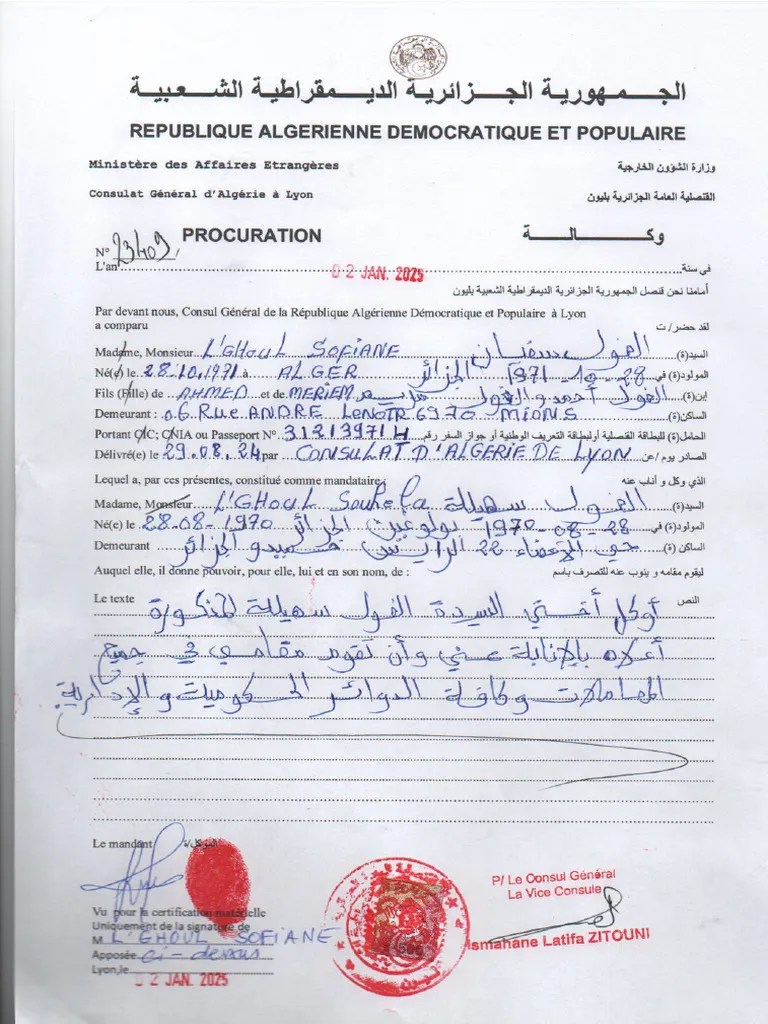 الجـمـهورية الجـزائرية الديـمقراطية الشـعبيـة
REPUBLIQUE ALGERIENNE DEMOCRATIQUE ET POPULAIRE
Ministère des Affaires Etrangères وزارة الشؤون الخارجية
Consulat Général d'Algérie à Lyon القنصلية العامة الجزائرية بليون
PROCURATION وكـالـة
N° 23409
L'an 02 JAN. 2025 في سنة
أمامنا نحن قنصل الجمهورية الجزائرية الديمقراطية الشعبية بليون
Par devant nous, Consul Général de la République Algérienne Démocratique et Populaire à Lyon
a comparu لقد حضر/ ت
Madame, Monsieur L'GHOUL SOFIANE الغول سفيان السيد(ة)
Né(e) le 28.10.1971 à ALGER الجزائر 1971-10-28 المولود(ة) في
Fils (Fille) de AHMED et de MERIEM الغول أحمد والغول مريم إبن(ة)
Demeurant : 06 Rue ANDRE LENOTR 6970 MIONS الساكن(ة)
Portant C/C; CNIA ou Passeport N° 31213971H الحامل(ة) للبطاقة القنصلية أولبطاقة التعريف الوطنية أو جواز السفر رقم
Délivré(e) le 29.08.24 par CONSULAT D'ALGERIE DE LYON الصادر يوم /عن
Lequel a, par ces présentes, constitué comme mandataire: الذي وكل و أناب عنه
Madame, Monsieur L'GHOUL Souhela الغول سهيلة السيد(ة)
Né(e) le 28-08-1970 بولوغين الجزائر 1970-08-28 المولود(ة) في
Demeurant حي الأعضاء 22 الرايس حميدو الجزائر الساكن (ة)
Auquel elle, il donne pouvoir, pour elle, lui et en son nom, de : ليقوم مقامه و ينوب عنه للتصرف باسم
Le texte النص
أوكل أختي السيدة الغول سهيلة المذكورة
أعلاه بالإنابة عني وأن تقوم مقامي في جميع
المعاملات وكافة الدوائر الحكومية و الإدارية
Le mandant الموكل/ة
P/ Le Consul Général
La Vice Consule
Ismahane Latifa ZITOUNI
Vu pour la certification matérielle
Uniquement de la signature de
M L'GHOUL SOFIANE
Apposée ci-dessus
Lyon,le 02 JAN. 2025